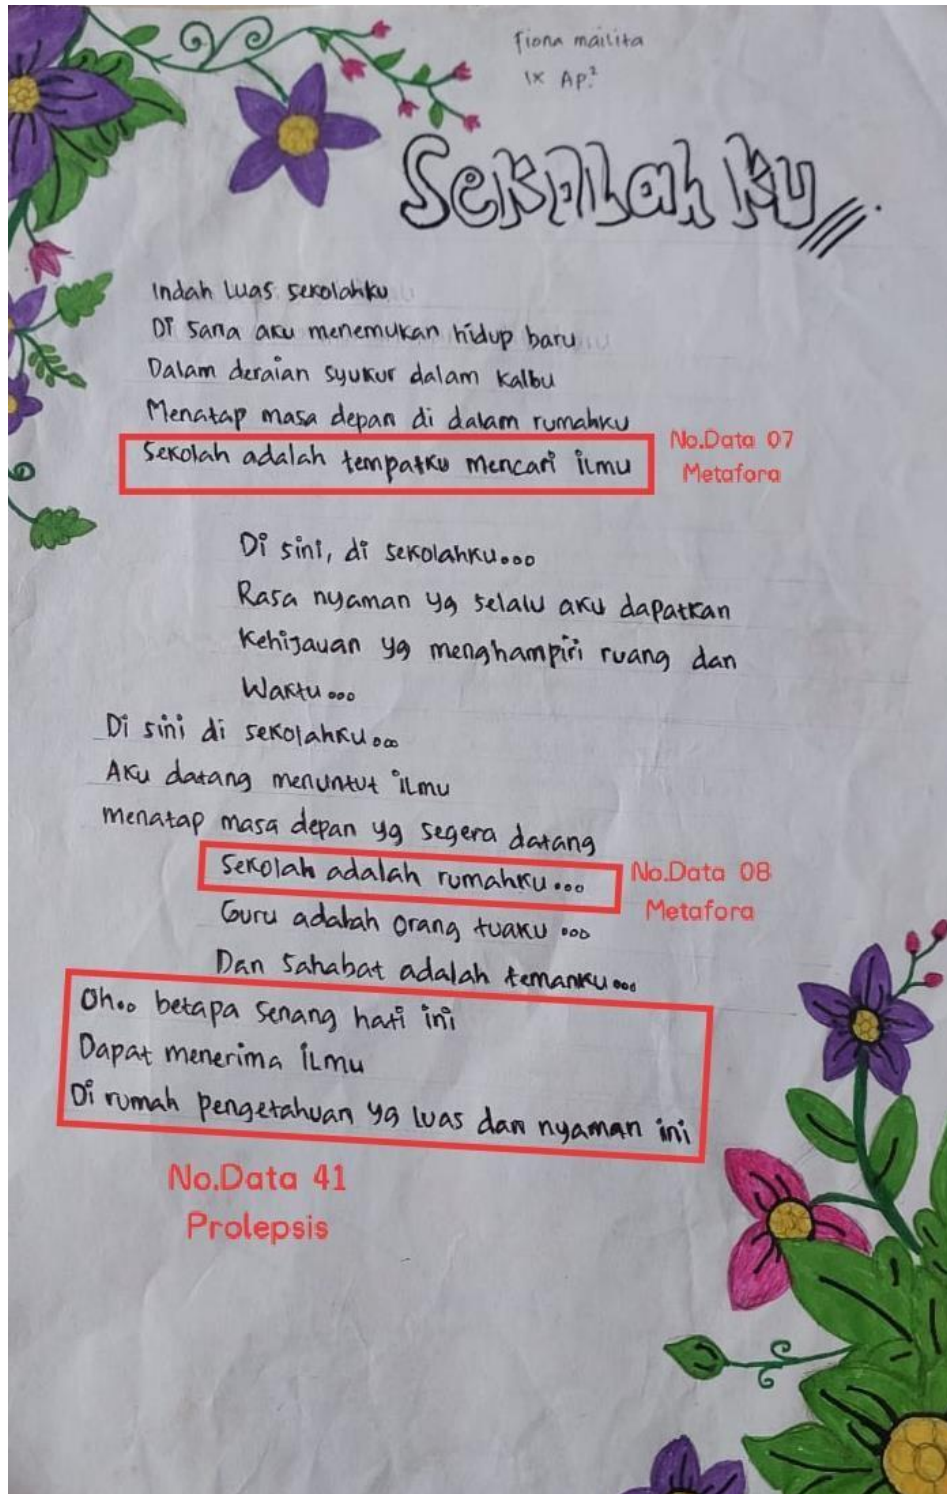 Fiona mailita
IX AP.2
Sekolah ku
Indah Luas sekolahku
Di sana aku menemukan hidup baru
Dalam deraian syukur dalam kalbu
Menatap masa depan di dalam rumahku
Sekolah adalah tempatku mencari ilmu
No.Data 07
Metafora
Di sini, di sekolahku...
Rasa nyaman yg selalu aku dapatkan
Kehijauan yg menghampiri ruang dan
Waktu...
Di sini di sekolahku...
Aku datang menuntut ilmu
menatap masa depan yg segera datang
Sekolah adalah rumahku...
No.Data 08
Metafora
Guru adalah orang tuaku ...
Dan Sahabat adalah temanku...
Oh.. betapa senang hati ini
Dapat menerima ilmu
Di rumah pengetahuan yg luas dan nyaman ini
No.Data 41
Prolepsis